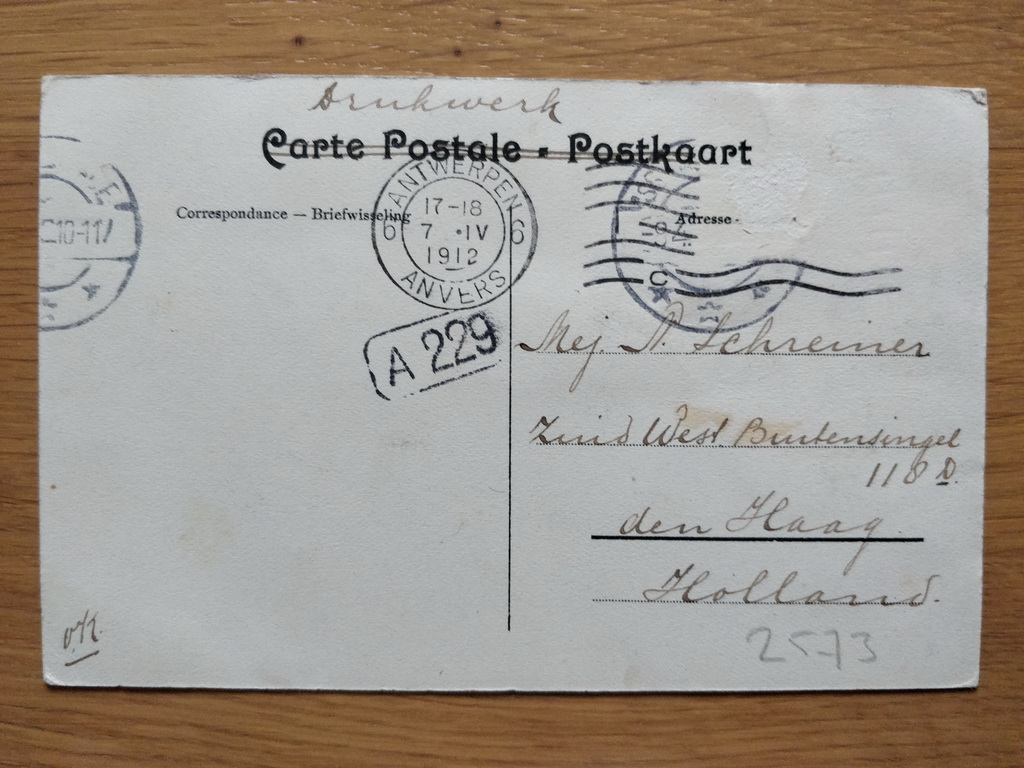 Drukwerk
Carte Postale - Postkaart
Correspondance — Briefwisseling
Adresse
10-11
ANTWERPEN
6 6
17-18
7 · IV
1912
ANVERS
C
A 229
Mej. P. Schreiner
Zuid West Buitensingel
118 D.
den Haag
Holland.
v.K.
2573